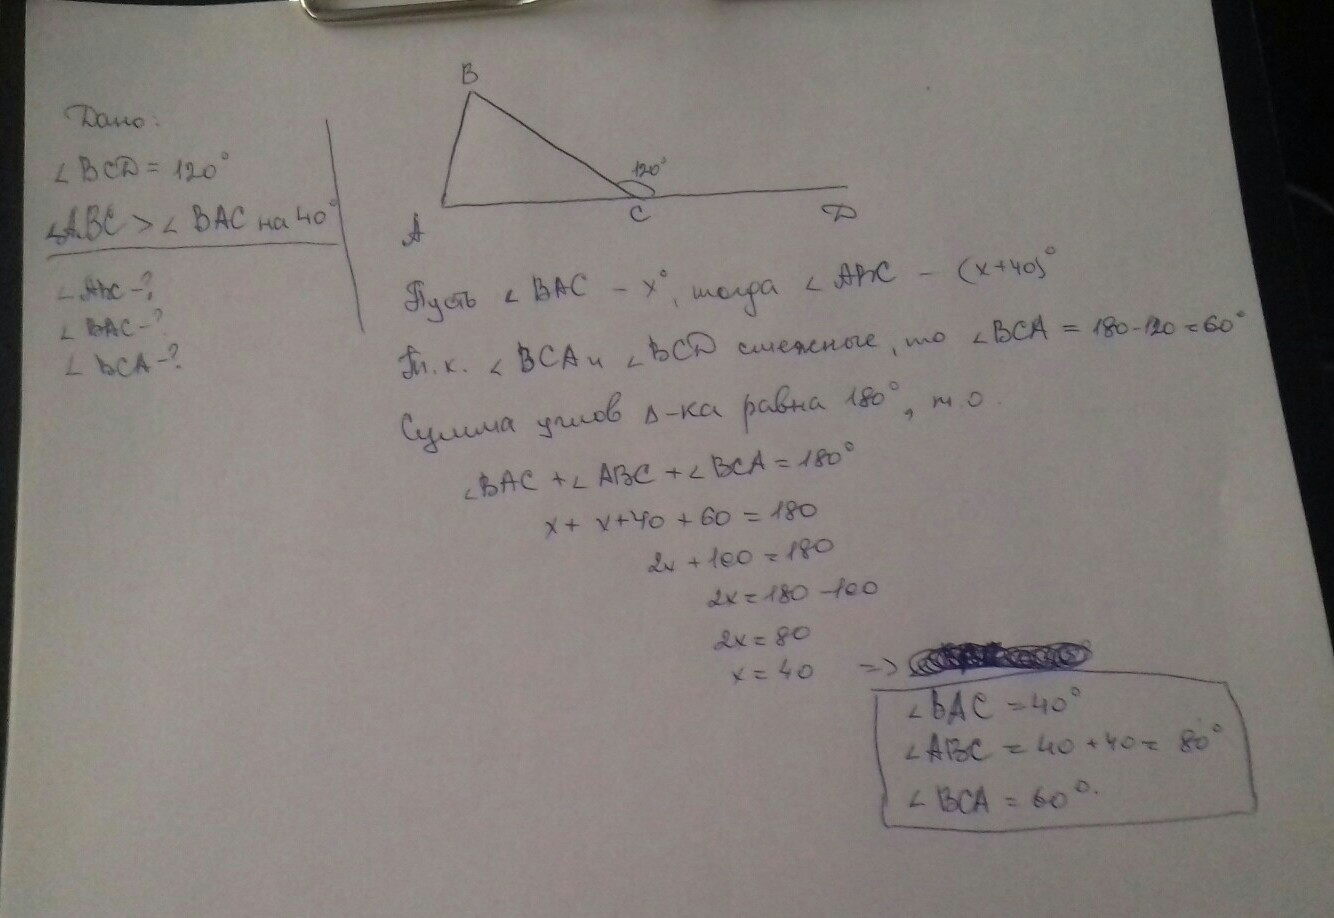 Дано:
∠BCD = 120°
∠ABC > ∠BAC на 40°
∠ABC - ?
∠BAC - ?
∠BCA - ?
B
120°
A
C
D
Пусть ∠BAC - x°, тогда ∠ABC - (x+40)°
Т.к. ∠BCA и ∠BCD смежные, то ∠BCA = 180-120 = 60°
Сумма углов Δ-ка равна 180°, т.о.
∠BAC + ∠ABC + ∠BCA = 180°
x + x+40 + 60 = 180
2x + 100 = 180
2x = 180 - 100
2x = 80
x = 40 =>
∠BAC = 40°
∠ABC = 40 + 40 = 80°
∠BCA = 60°.